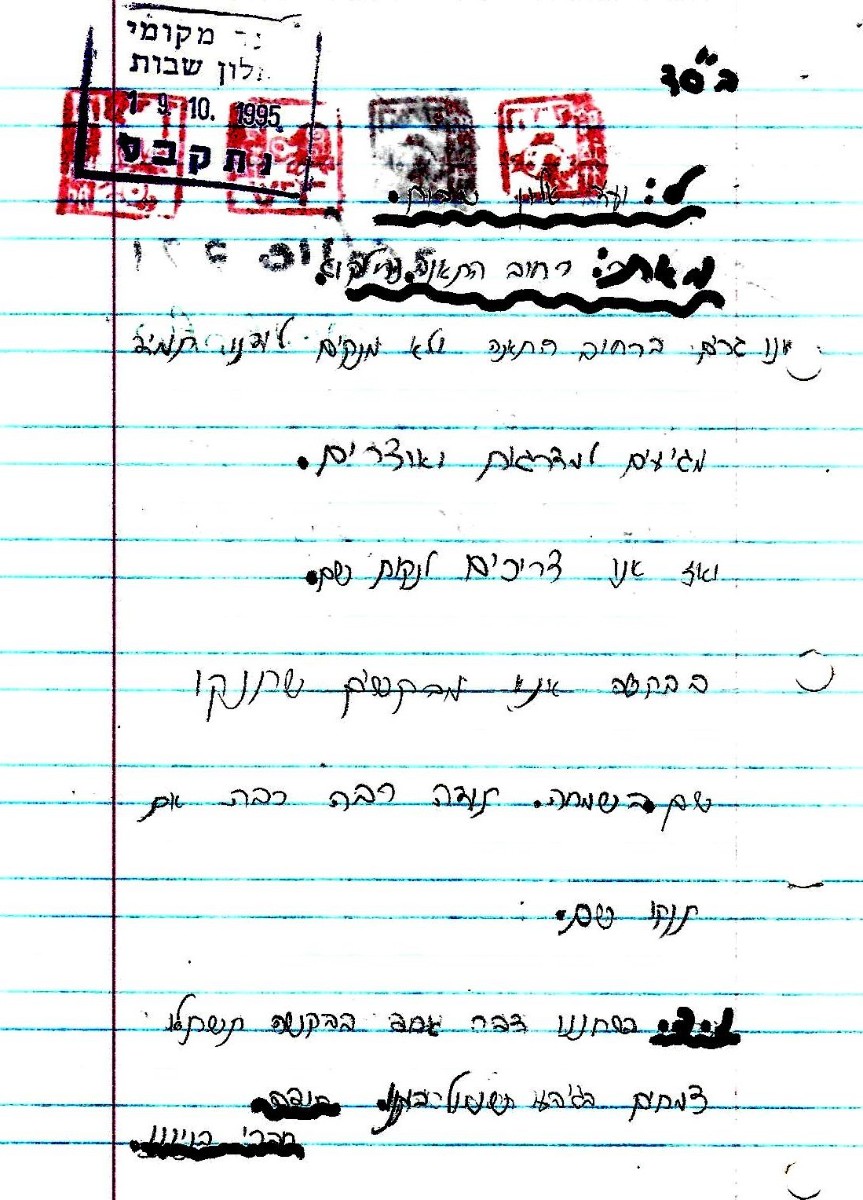 מקומי
אלון שבות
19. 10. 1995
נתקבל
ב"סד
ל: ועד אלון שבות.
מאת: רחוב התאנה
אנו גרים ברחוב התאנה ולא מנקים לנו תמיד
מגיעים למדרגות ועוצרים.
ואז אנו צריכים לנקות שם.
בבקשה אנא מבקשים שתנקו
שם בשמחה. תודה רבה רבה אם
תנקו שם.
נ.ב. שכחנו דבר אחד בבקשה תשתלו
צמחים תודה
חברי בנייננו.